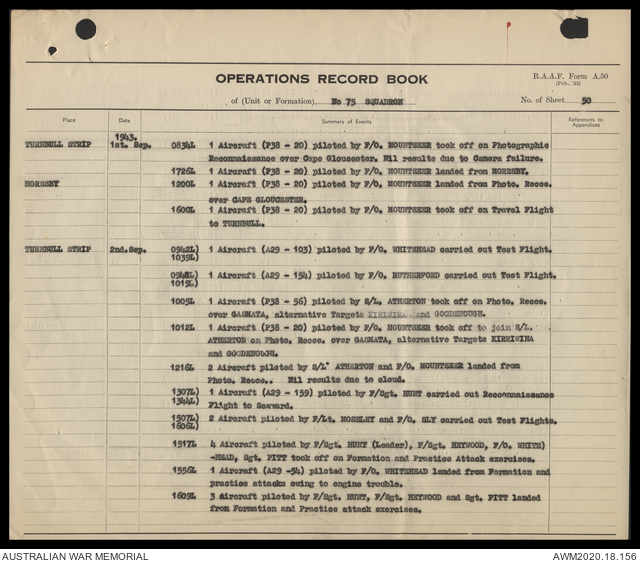 OPERATIONS RECORD BOOK
R.A.A.F. Form A.50
(Feb., '33)
of (Unit or Formation) No 75 SQUADRON
No. of Sheet 50
Place Date Summary of Events References to Appendices
1943.
TURNBULL STRIP 1st. Sep. 0834L 1 Aircraft (P38 - 20) piloted by F/O. MOUNTSEER took off on Photographic
Reconnaissance over Cape Gloucester. Nil results due to Camera failure.
1726L 1 Aircraft (P38 - 20) piloted by F/O. MOUNTSEER landed from MORESBY.
MORESBY 1200L 1 Aircraft (P38 - 20) piloted by F/O. MOUNTSEER landed from Photo. Recce.
over CAPE GLOUCESTER.
1600L 1 Aircraft (P38 - 20) piloted by F/O. MOUNTSEER took off on Travel Flight
to TURNBULL.
TURNBULL STRIP 2nd. Sep. 0942L) 1 Aircraft (A29 - 103) piloted by F/O. WHITEHEAD carried out Test Flight.
1039L)
0948L) 1 Aircraft (A29 - 154) piloted by F/O. RUTHERFORD carried out Test Flight.
1015L)
1005L 1 Aircraft (P38 - 56) piloted by S/L. ATHERTON took off on Photo. Recce.
over GASMATA, alternative Targets KIRIWINA and GOODENOUGH.
1012L 1 Aircraft (P38 - 20) piloted by F/O. MOUNTSEER took off to join S/L.
ATHERTON on Photo. Recce. over GASMATA, alternative Targets KIRRIWINA
and GOODENOUGH.
1216L 2 Aircraft piloted by S/L' ATHERTON and F/O. MOUNTSEER landed from
Photo. Recce.. Nil results due to cloud.
1307L) 1 Aircraft (A29 - 159) piloted by F/Sgt. HUNT carried out Reconnaissance
1344L) Flight to Seaward.
1507L) 2 Aircraft piloted by F/Lt. MOSELEY and F/O. SLY carried out Test Flights.
1606L)
1517L 4 Aircraft piloted by F/Sgt. HUNT (Leader), F/Sgt. HEYWOOD, F/O. WHITE)
-HEAD, Sgt. PITT took off on Formation and Practice Attack exercises.
1556L 1 Aircraft (A29 -54) piloted by F/O. WHITEHEAD landed from Formation and
practice attacks owing to engine trouble.
1609L 3 Aircraft piloted by F/Sgt. HUNT, F/Sgt. HEYWOOD and Sgt. PITT landed
from Formation and Practice attack exercises.
AUSTRALIAN WAR MEMORIAL AWM2020.18.156